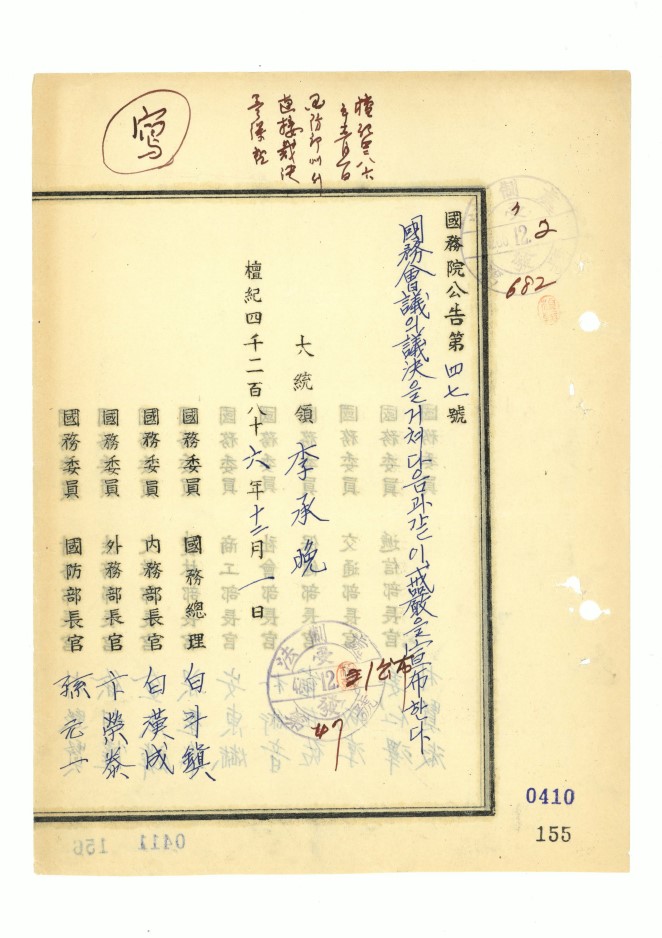 寫
檀紀四二八六
年十二月一日
國防部에서
直接裁決
國務院公告第四七號
國務會議의議決을거쳐다음과같이戒嚴을宣布한다
大統領 李承晩
檀紀四千二百八十六年十二月一日
國務委員 國務總理 白斗鎭
國務委員 內務部長官 白漢成
國務委員 外務部長官 卞榮泰
國務委員 國防部長官 孫元一
2
682
12.
法制
12.
公布
47
0410
155